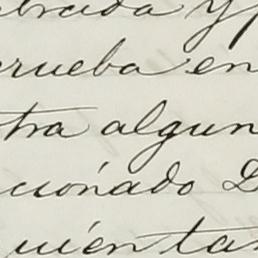 brada y p
rueba en
tra algun
cionado D
uien ta